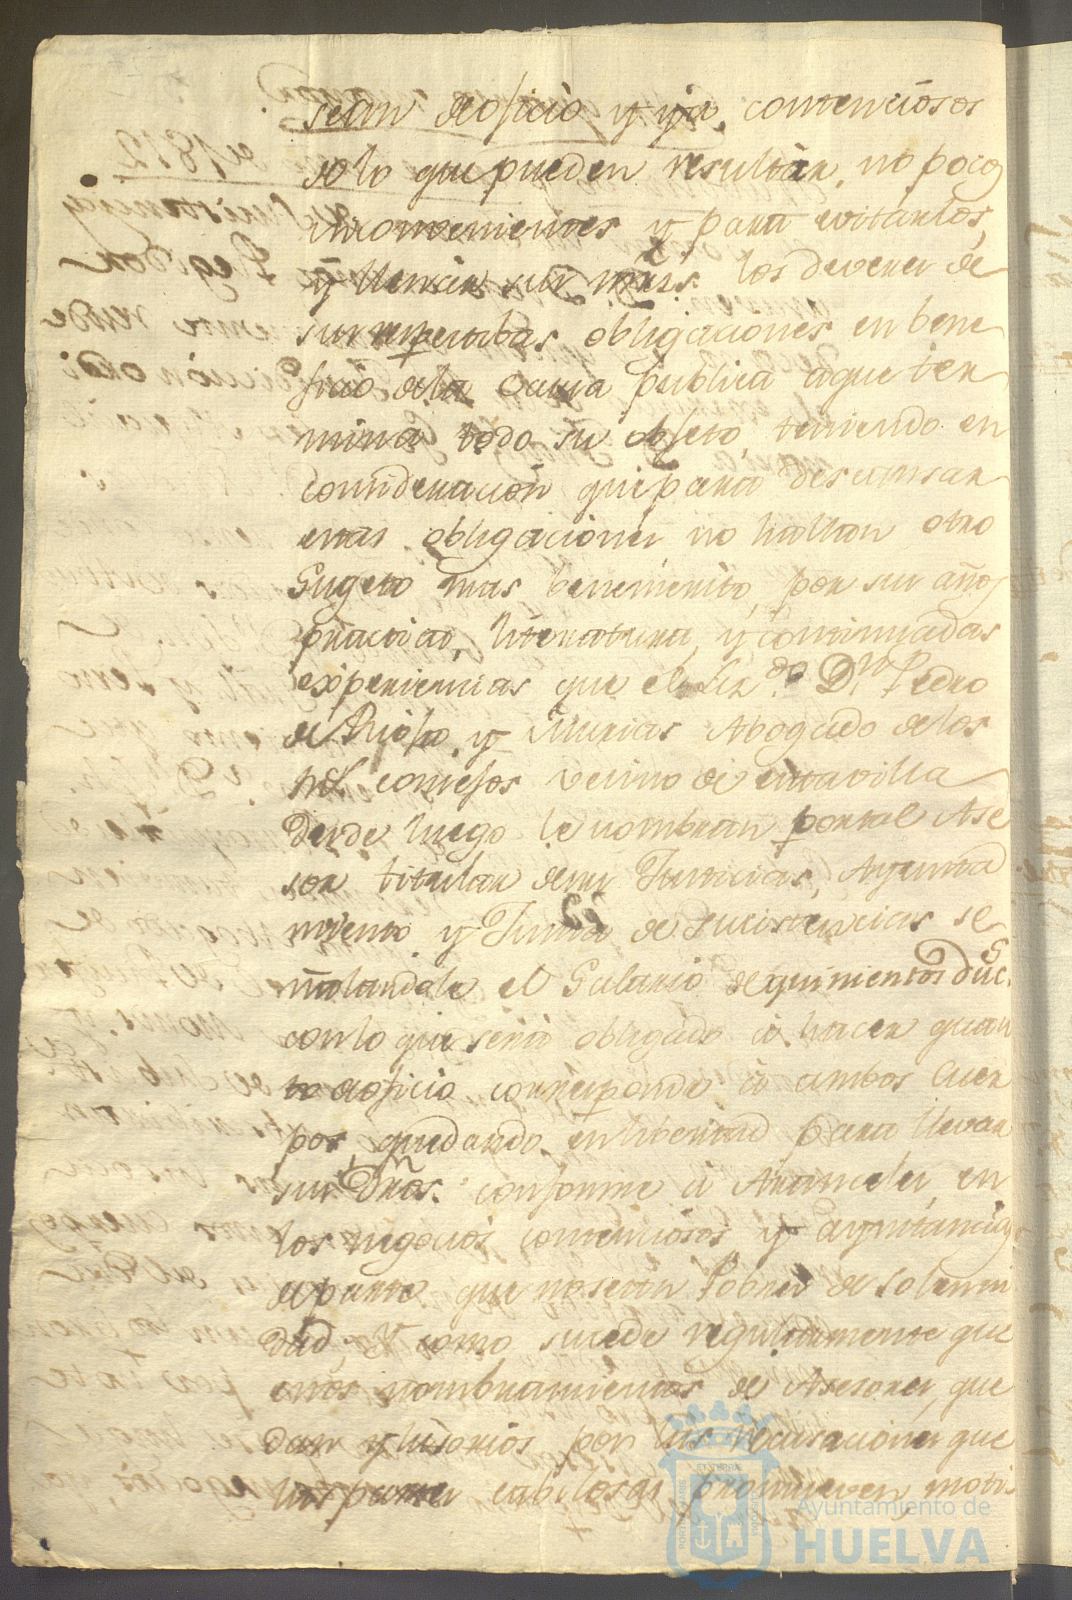 sean deoficio y ya contenciosos
solo que pueden resultar no pocos
inconvenientes y para evitarlos,
y llenar sus mrzs. los deveres de
sus respectibas obligaciones en bene
ficio dela Causa publica aque ter
mina todo su objeto, teniendo en
concideracion que para descansar
estas obligaciones no hallan otro
Sugeto mas benemerito, por sus años
practica, literatura, y continuadas
experiencias que el Lizdo. Dn. Pedro
de y Murias Abogado de los
Rs. consejos vecino de esta villa
desde luego le nombran por tal Ase
sor titular de sus Justicias, Ayunta
miento y Junta de Sucistencias se
ñalandole el Salario de quinientos ducs.
con lo que será obligado á hacer quan
to deoficio corresponda á ambos Cuer
pos, quedando en libertad para llevar
sus Dros. conforme á Aranceles, en
los negocios contenciosos y aynstancias
de parte que no sean Pobres de solemni
dad, Y como sucede regularmente que
estos nombramientos de Asesores, que
dan ylusorios por las recusaciones que
las partes cabilosas promueven motib
Ayuntamiento de
HUELVA